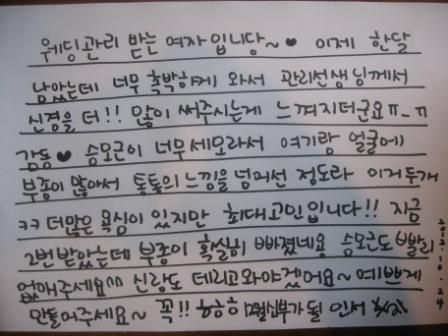 웨딩관리 받는 여자입니당~♥ 이제 한달
남았는데 너무 촉박하게 와서 관리선생님께서
신경을 더!! 많이 써주시는게 느껴지더군요ㅠ_ㅠ
감동♥ 승모근이 너무 세모라서 여기랑 얼굴에
부종이 많아서 통통의 느낌을 넘어선 정도라 이거두개
ㅋㅋ 더많은 욕심이 있지만 최대고민입니다!! 지금
2번받았는데 부종이 확실히 빠졌네용 승모근도 빨리
없애주세요 신랑도 데리고와야겠어요~ 예쁘게
만들어주세요~ 꼭!! 12월신부가 될